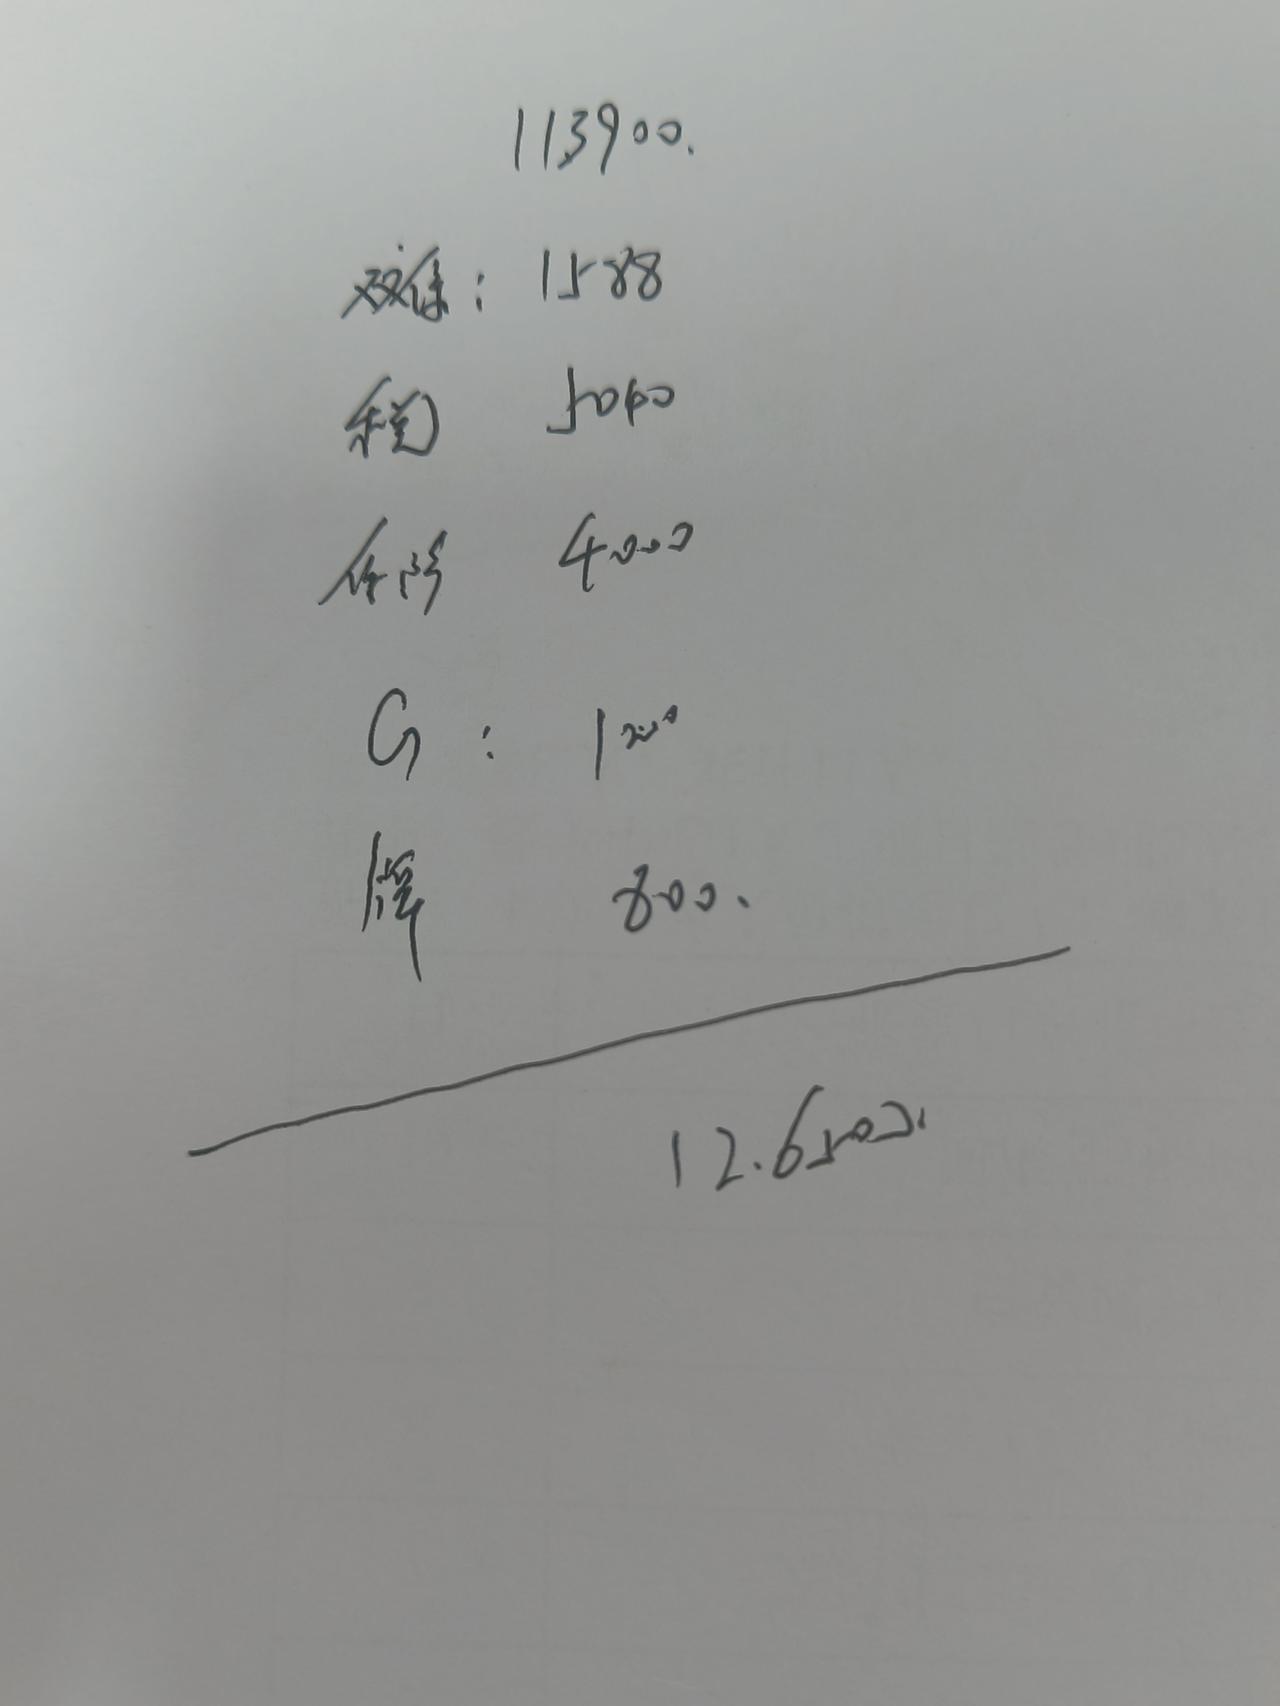 113900.
双保: 1588
税 5040
保险 4000
G: 1000
牌 800.
12.6500.